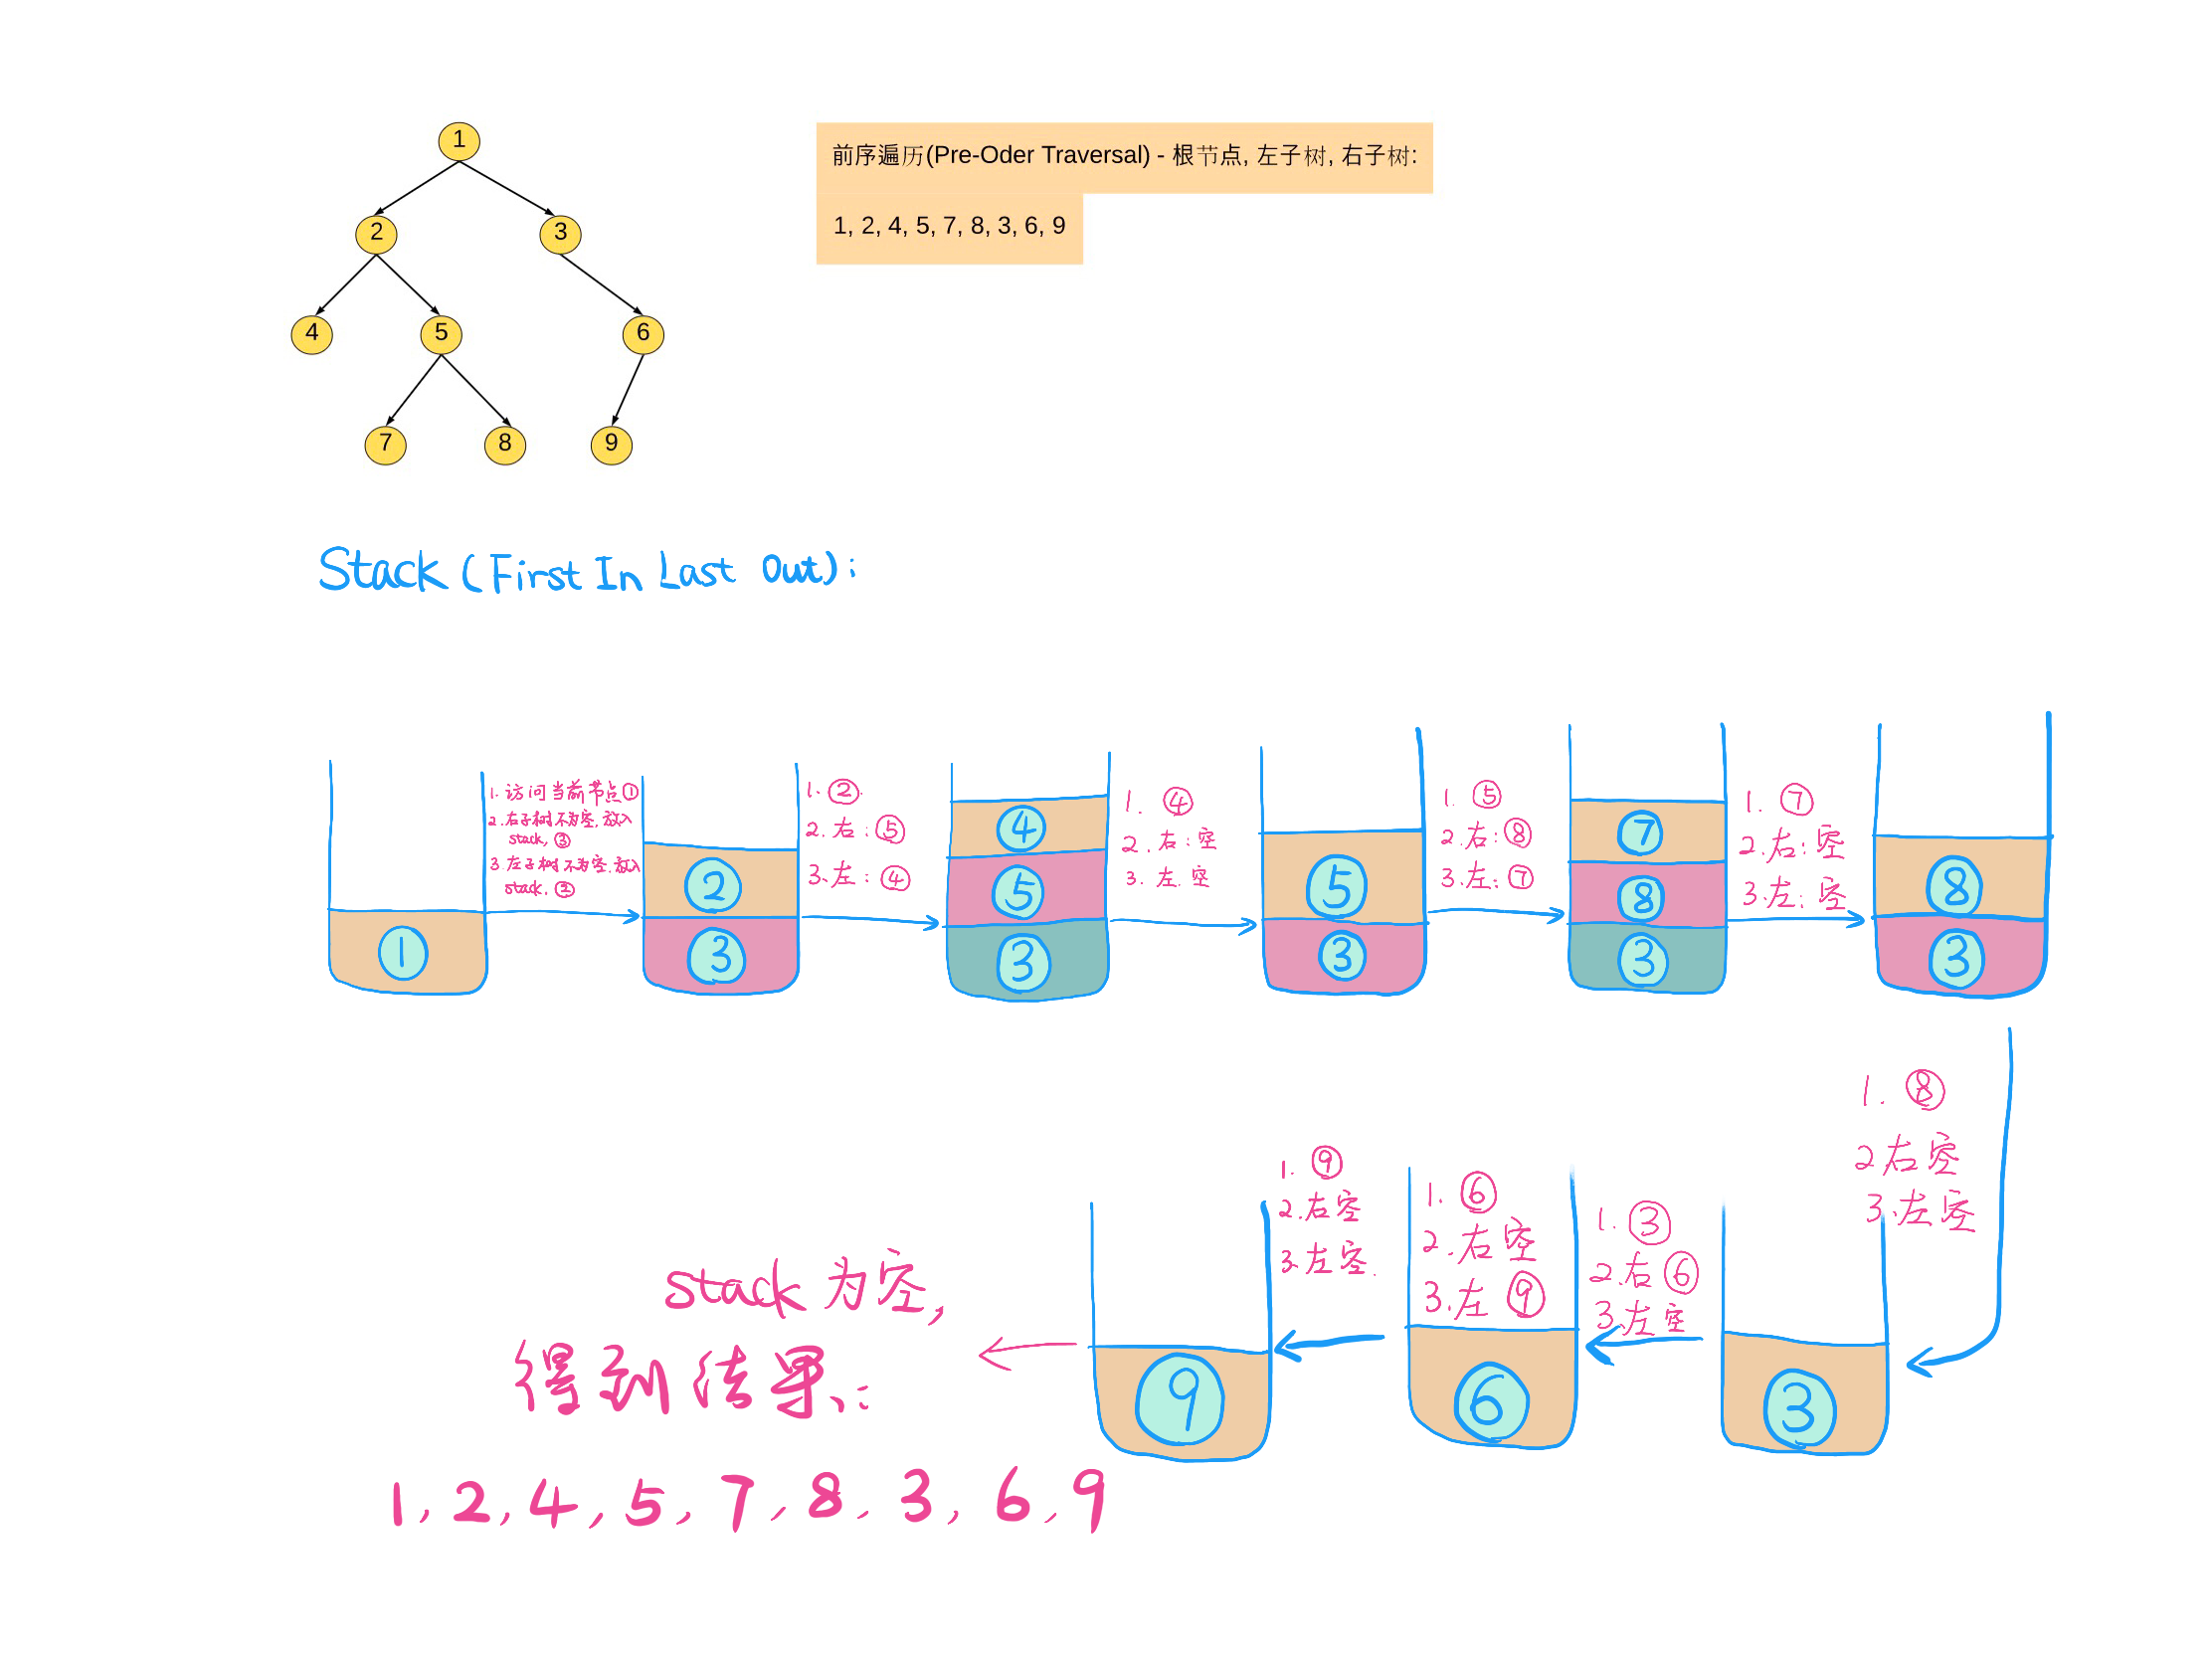 1
2
3
4
5
6
7
8
9
前序遍历(Pre-Oder Traversal) - 根节点, 左子树, 右子树:
1, 2, 4, 5, 7, 8, 3, 6, 9
Stack (First In Last Out):
①
1. 访问当前节点①
2. 右子树不为空, 放入
stack, ③
3. 左子树不为空. 放入
stack. ②
②
③
1. ②.
2. 右: ⑤
3. 左: ④
④
⑤
③
1. ④
2. 右: 空
3. 左. 空
⑤
③
1. ⑤
2. 右: ⑧
3. 左: ⑦
⑦
⑧
③
1. ⑦
2. 右: 空
3. 左: 空
⑧
③
1. ⑧
2 右空
3. 左空
③
1. ③
2. 右⑥
3. 左空
⑥
1. ⑥
2. 右空
3. 左⑨
⑨
1. ⑨
2. 右空
3. 左空.
stack 为空,
得到结果:
1, 2, 4, 5, 7, 8, 3, 6, 9